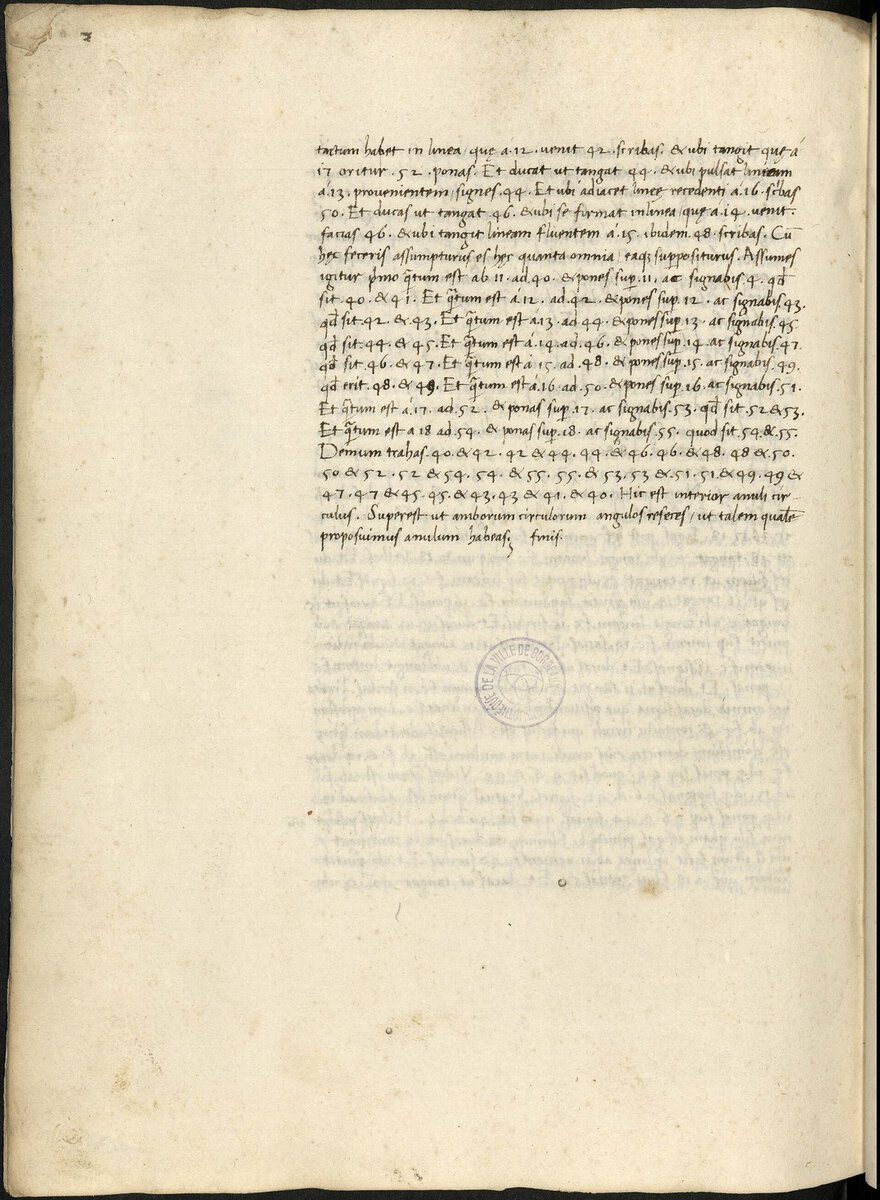 tactum habet in linea, quę a .12. venit 42. scribas. & ubi tangit quę á
17 oritur .52. ponas. Et ducat ut tangat 44. & ubi pulsat lineam
á .13. provenientem, signes .44. Et ubi adiacet lineę recedenti á .16. scribas
50. Et ducas ut tangat .46. & ubi se firmat in linea, quę a .14. venit.
facias 46. & ubi tangit lineam fluentem á .15. ibidem .48. scribas. Cū
hęc feceris assumpturus es hęc quanta omnia, eaq; suppositurus. Assumes
igitur p̄mo q̄tum est ab 11. ad .40. & pones sup̄. 11. ac signabis .4. qd̄
sit .40. & 41. Et q̄tum est á .12. ad .42. & pones sup̄. 12. ac signabis .43.
qd̄ sit .42. & .43. Et q̄tum est a .13. ad .44. & pones sup̄. 13. ac signabis .45
qd̄ sit .44. & 45. Et q̄tum est á .14. ad .46. & pones sup̄. 14. ac signabis .47
qd̄ sit .46. & 47. Et q̄tum est á .15. ad .48. & pones sup̄. 15. ac signabis .49.
qd̄ erit .48. & 49. Et q̄tum est a .16. ad .50. & pones sup̄. 16. ac signabis .51.
Et q̄tum est á .17. ad .52. & ponas sup̄. 17. ac signabis .53. qd̄ sit .52 & 53.
Et q̄tum est a 18 ad .54. & ponas sup̄. 18. ac signabis .55. quod sit .54. & .55.
Demum trahas .40. & 42. 42 & 44. 44. & 46. 46. & 48. 48 & .50.
50 & 52. 52 & 54. 54. & 55. 55. & 53. 53 & .51. 51. & 49. 49 &
47. 47 & 45. 45. & 43. 43 & 41. & 40. Hic est interior anuli cir-
culus. Superest ut amborum circulorum angulos reseces, ut talem qualē
proposuimus anulum habeas; finis.
BIBLIOTHÈQUE DE LA VILLE DE BORDEAUX